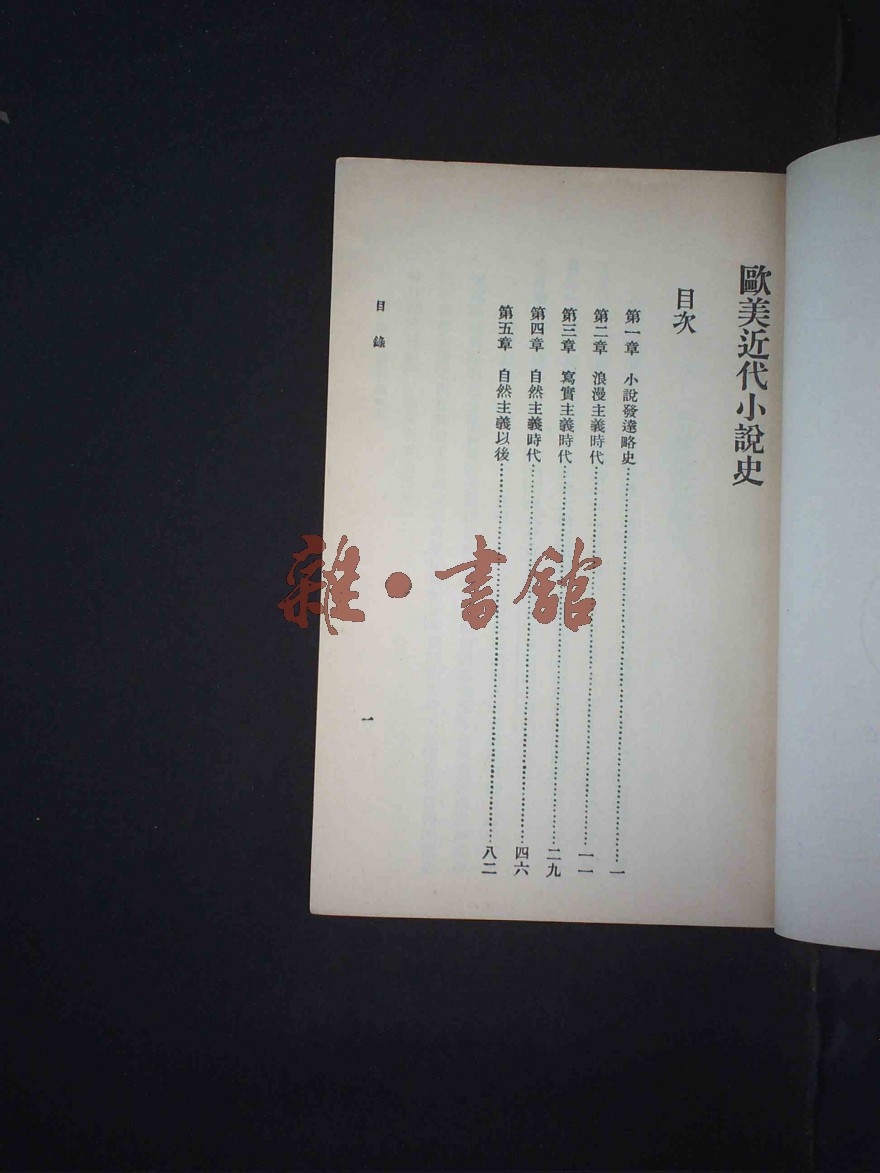 歐美近代小說史
目次
第一章 小說發達略史……………一
第二章 浪漫主義時代……………一一
第三章 寫實主義時代……………二九
第四章 自然主義時代……………四六
第五章 自然主義以後……………八二
目錄
一
雜·書館